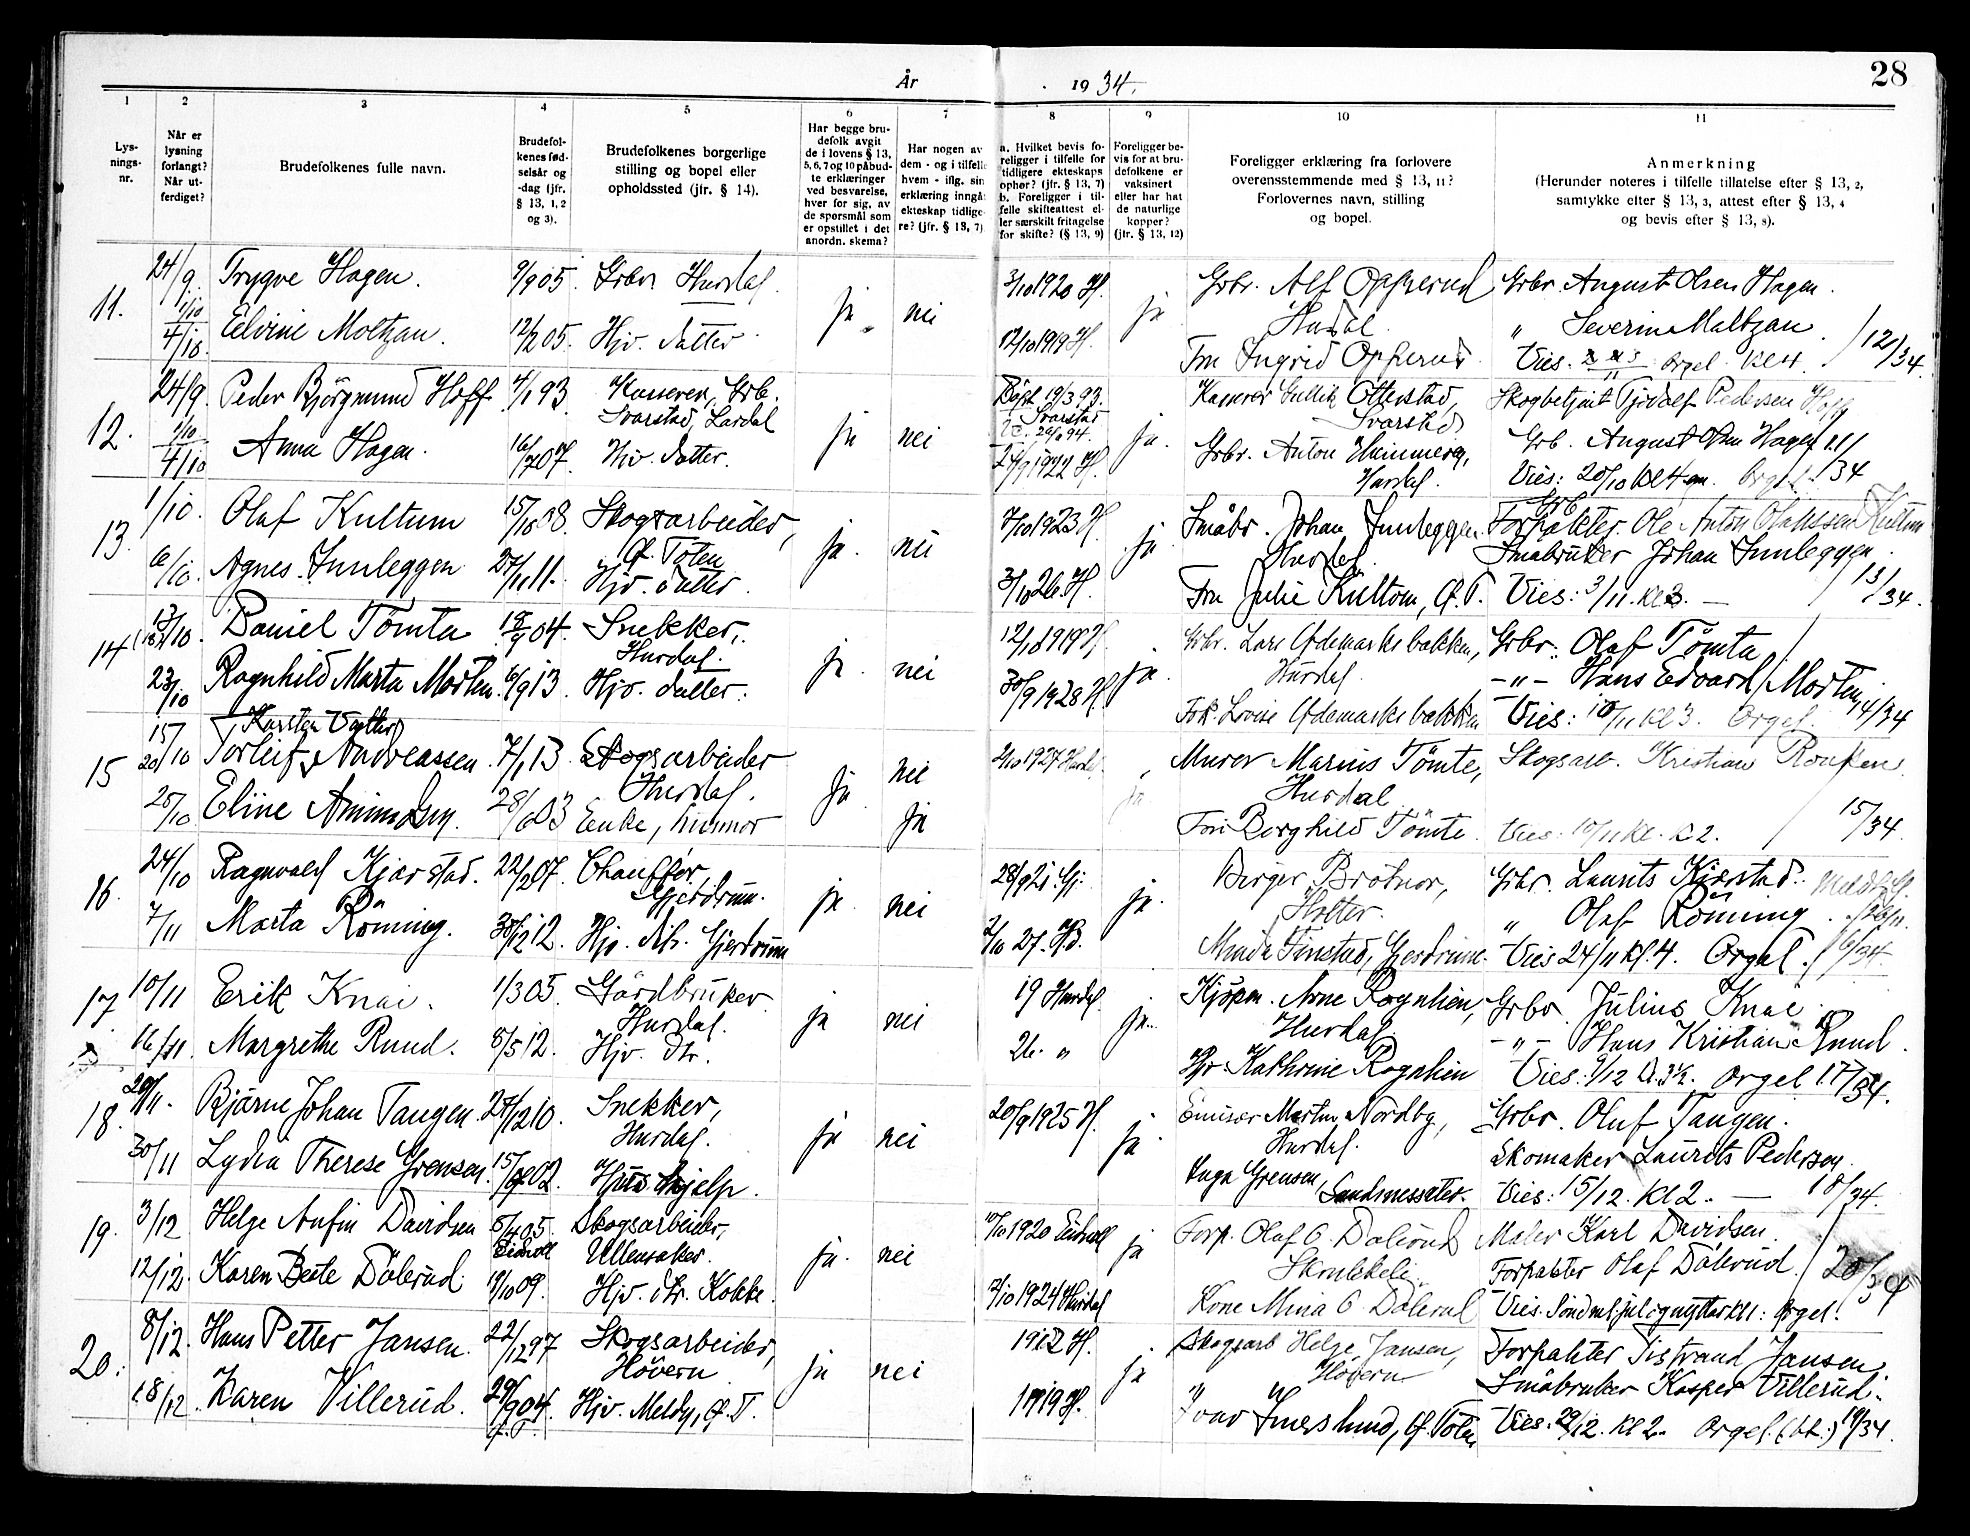 28
År 1934.
1 2 3 4 5 6 7 8 9 10 11
Lysnings-nr.
Når er lysning forlangt? Når utferdiget?
Brudefolkenes fulle navn.
Brudefolkenes fødselsår og -dag (jfr. § 13, 1, 2 og 3).
Brudefolkenes borgerlige stilling og bopel eller opholdssted (jfr. § 14).
Har begge brudefolk avgit de i lovens § 13, 5, 6, 7 og 10 påbudte erklæringer ved besvarelse, hver for sig, av de spørsmål som er opstillet i det anordn. skema?
Har nogen av dem - og i tilfelle hvem - iflg. sin erklæring inngått ekteskap tidligere? (jfr. § 13, 7)
a. Hvilket bevis foreligger i tilfelle for tidligere ekteskaps ophør? (jfr. § 13, 7)
b. Foreligger i tilfelle skifteattest eller særskilt fritagelse for skifte? (§ 13, 9)
Foreligger bevis for at brudefolkene er vaksinert eller har hat de naturlige kopper? (jfr. § 13, 12)
Foreligger erklæring fra forlovere overensstemmende med § 13, 11? Forlovernes navn, stilling og bopel.
Anmerkning
(Herunder noteres i tilfelle tillatelse efter § 13, 2, samtykke efter § 13, 3, attest efter § 13, 4 og bevis efter § 13, 8).
11. 24/9. Trygve Hagen. 9/9 05. Grbr. Hurdal. ja. nei 3/10 1920 H. ja Grbr. Alf Opperud Hurdal. Grbr. August Olsen Hagen.
1/10 4/10. Elvine Moltzau. 12/2 05. Hjv. datter. 12/10 1919 H. Fru Ingrid Opperud. " Severin Maltzau. Vies. Orgel Kl 4 12/34.
12. 24/9. Peder Björgmund Hoff 4/1 93 Kasserer, Grb. Svarstad, Lardal ja nei Døpt 19/3 93. Svarstad ja. Kasserer Gullik Otterstad, Svarstad Skogbetjent Pedersen Hoff
1/10 4/10 Anna Hagen. 16/7 07. Hjv. datter. 1922 H. Grbr. Anton Heimmeng, Hurdal. Grb. August Olsen Hagen Vies: 20/10 Kl 4 em. Orgel. 11/34
13. 1/10. Olaf Kultum 15/10 08. Skogsarbeider, Ø. Toten ja. nei 7/10 1923 H. ja Småbr. Johan Innleggen Hurdal. Grb Forpakter Ole Anton Olaussen Kultum
6/10. Agnes Innleggen 27/11 11. Hjv. datter. 3/10 26. H. Fru Julie Kultom, Ø. T. Småbruker Johan Innleggen. Vies: 3/11. Kl 3. — 13/34.
14 13/10. Daniel Tömta 18/9 04. Snekker, Hurdal. ja. nei 12/10 1919 H. ja. Grbr. Lars Ødemarksbakken, Hurdal. Grbr. Olaf Tömta
23/10 Ragnhild Marta Morten 16/9 13. Hjv. datter. 30/9 1928 H. Frk. Lovise Ødemarksbakken -"- Hans Edvard Morten Vies: 10/11 Kl 3. Orgel. 14/34
15 15/10 20/10 Torleif Karsten Andreassen. 7/1 13. Skogsarbeider Hurdal. ja nei 2/10 1927 Hurdal ja. Murer Marius Tömte, Hurdal Skogsarb. Kristian
25/10 Eline Amundsen. 28/6 03 Enke, husmor ja Fru Borghild Tömte. Vies: 10/11 kl. 2. 15/34.
16. 24/10 Ragnvald Kjærstad. 22/2 07. Chauffør, Gjerdrum. ja. nei 28/9 21. Gj. ja. Birger Brotnor, Holter. Grbr. Laurits Kjærstad.
7/11 Marta Röming. 30/12 12. Hjv. dtr. Gjerdrum 2/10 27. Minda Finstad, Gjerdrum. " Olaf Röming. Vies 24/11 Kl. 4. Orgel. 16/34
17 10/11 Erik Knai. 1/3 05. Gårdbruker Hurdal. ja nei 19 Hurdal. ja. Kjøpm. Arne Rognlien, Hurdal. Grbr. Julius Knai.
16/11 Margrethe Ruud. 8/5 12. Hjv. dtr. 26. " Hjv. Kathrine Rognlien -"- Hans Kristian Ruud. Vies: 9/12 Kl. 3½. Orgel 17/34.
18. 20/11. Bjarne Johan Tangen. 24/12 10. Snekker, Hurdal. ja nei 20/9 1925 H. ja. Martin Nordby, Hurdal. Grbr. Oluf Tangen.
30/11 Lydia Therese Grensen. 15/9 02. Hushjelp. Inga Grensen, Sandmessæter. Skomaker Laurits Pedersen. Vies: 15/12. Kl 2. — 18/34.
19. 3/12 Helge Anfin Davidsen 5/4 05. Eidsvoll Skogsarbeider, Ullensaker. ja. nei 10/10 1920 Eidsvoll ja Forp. Olaf O. Dålerud Maler Karl Davidsen.
12/12. Karen Beate Dålerud. 19/10 09. Hjv. dtr. Kokke. 7/10 1924 Hurdal Kone Mina O. Dålerud Forpakter Olaf Dålerud. Vies. Orgel. 20/34
20. 8/12. Hans Petter Jansen. 22/12 97 Skogsarbeider, Høvern ja nei 1912 H. ja Skogsarb Helge Jansen, Høvern Forpakter Jansen
18/12. Karen Villerud. 29/9 04. Ø. T. Hjv. Meldy, Ø. T. 1919 H. " " Ivar Ø. Toten Småbruker Kasper Villerud. Vies. 29/12. Kl 2. Orgel. 19/34.